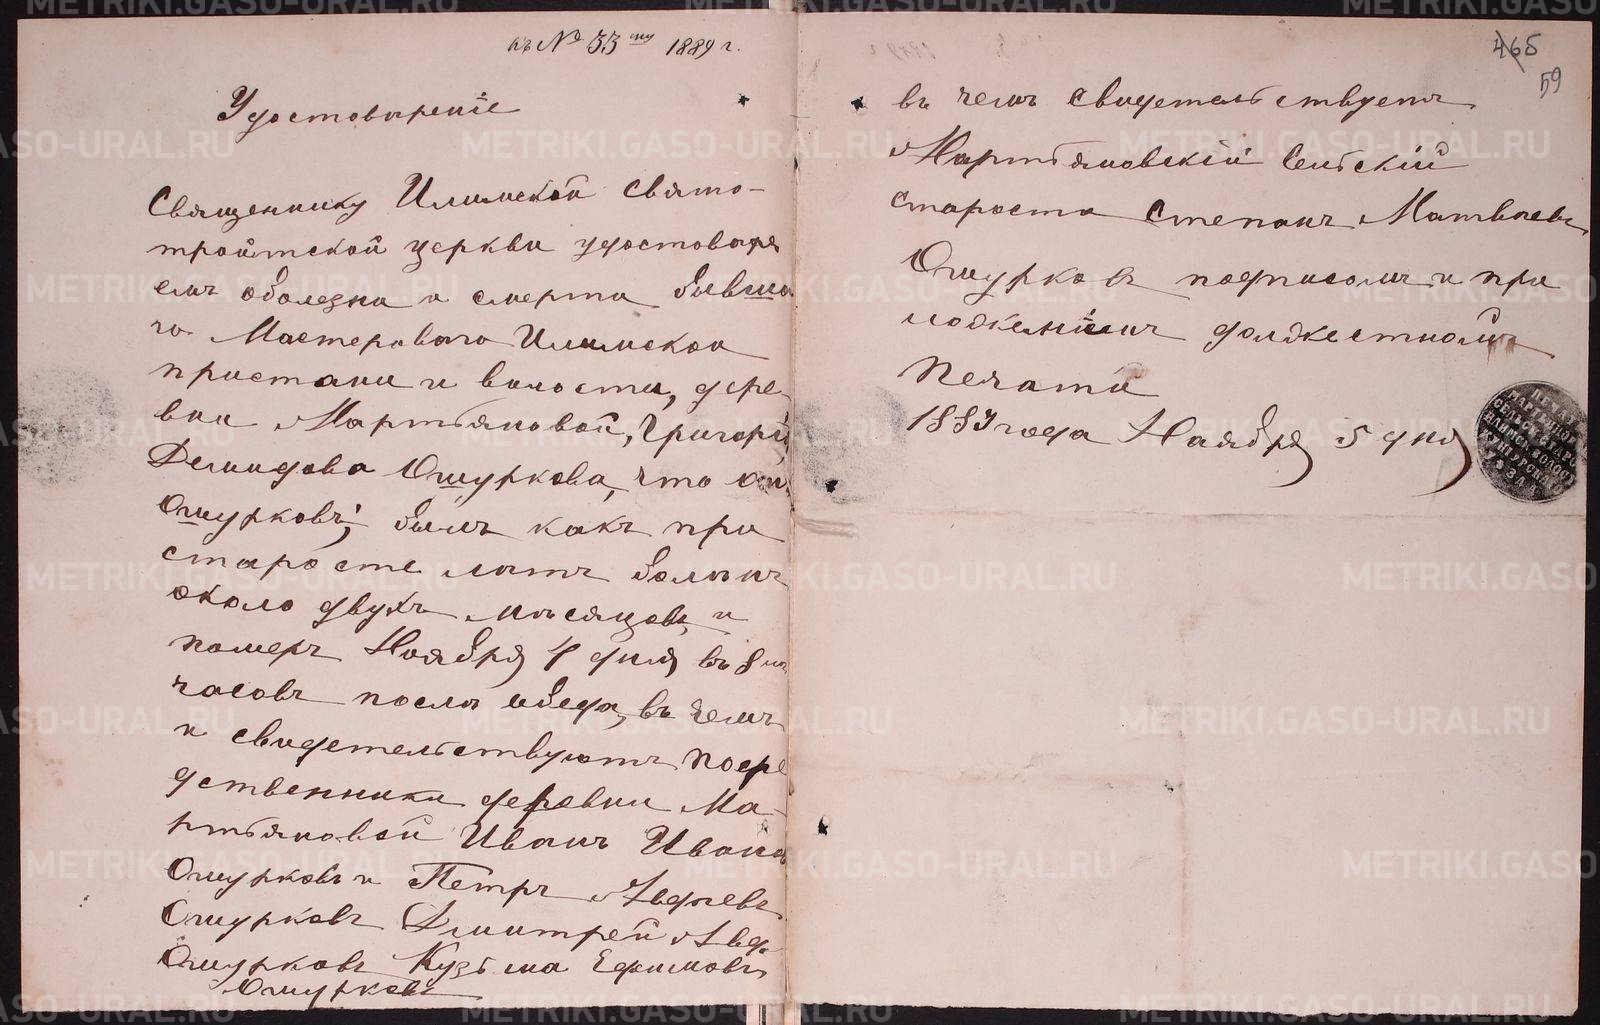 къ № 33му 1889 г.
Удостоверенiе
Священнику Илимской Свято-
тройтской церкви удостоверя
емъ оболезни и смерти бывша
го Мастероваго Илимской
пристани и волости, дере
вни Мартьяновой, Григорiя
Демидова Ошуркова, что он
Ошурковъ, былъ какъ при
старосте летъ боленъ
около двухъ месяцовъ и
померъ Ноября 4 дня въ 8 мь
часовъ после обеда, въ чемъ
и свидетельствуютъ посре
дственники деревни Ма-
ртьяновой Иванъ Иванов
Ошурковъ и Петръ Авдеевъ
Ошурковъ Дмитрей Авде
Ошурковъ Кузьма Ефимовъ
Ошурковъ
465
59
въ чемъ свидетельствуетъ
Мартьяновскiй Сельскiй
староста Степанъ Матвеевъ
Ошурковъ подписомъ и при
ложенiемъ должестной
Печати
1889 года Наября 5 дня
METRIKI.GASO-URAL.RU